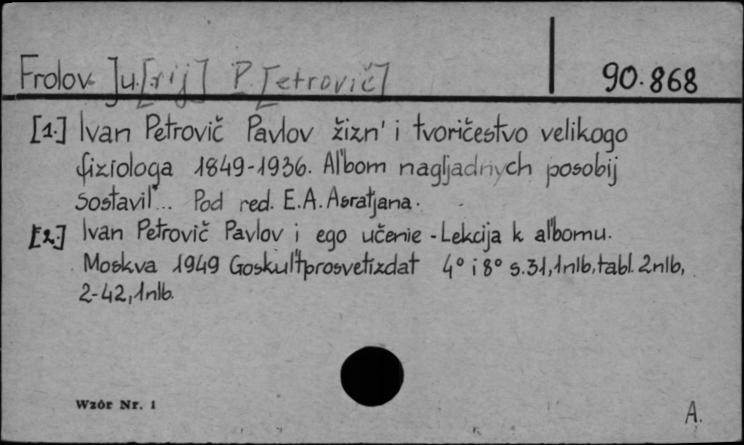 Frolov Ju.[rij] P.[etrovič] 90.868
[1.] Ivan Petrovič Pavlov žizn' i tvoričestvo velikogo
fiziologa 1849-1936. Al'bom nagljadnych posobij
Sostavil... Pod red. E.A. Asratjana.
[2.] Ivan Petrovič Pavlov i ego učenie - Lekcija k al'bomu.
Moskva 1949 Goskul'tprosvetizdat 4° i 8° s.31,1nlb,tabl. 2nlb,
2-42,1nlb.
Wzór Nr. 1
A.